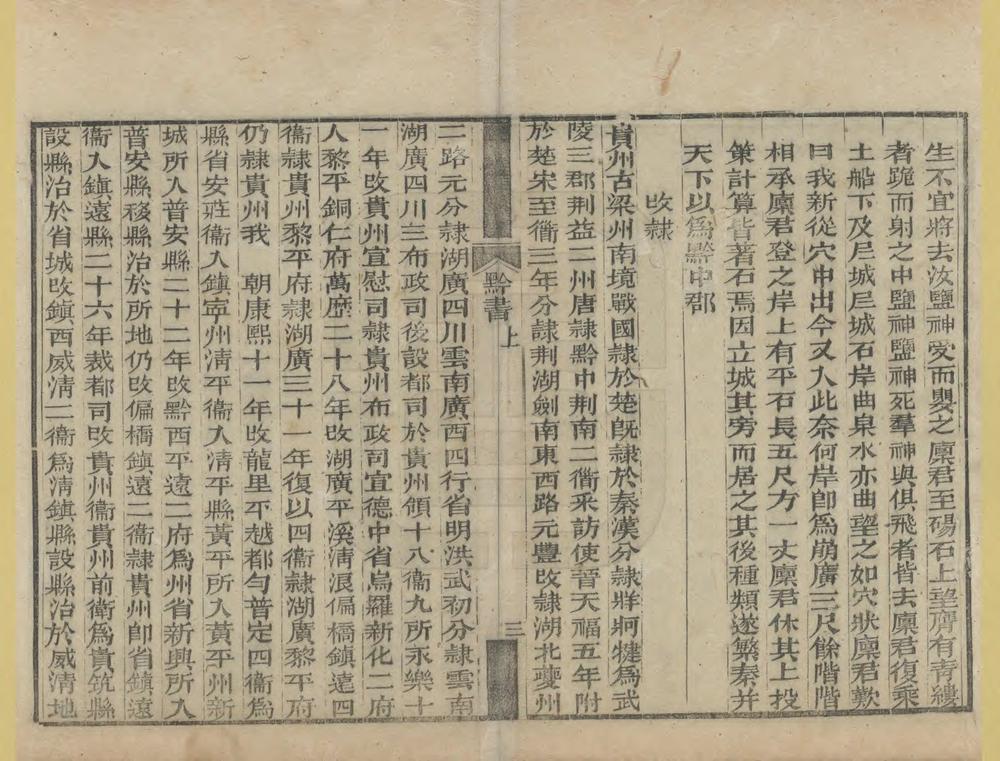 生不宜將去汝鹽神受而嬰之廩君至碭石上望膺有青縷
者跪而射之中鹽神鹽神死羣神與俱飛者皆去廩君復乘
土船下及𡰥城𡰥城石岸曲泉水亦曲望之如穴狀廩君歎
曰我新從穴中出今又入此奈何岸卽爲崩廣三尺餘階階
相承廩君登之岸上有平石長五尺方一丈廩君休其上投
策計算皆著石焉因立城其旁而居之其後種類遂繁秦并
天下以爲黔中郡
改隷
貴州古梁州南境戰國隷於楚旣隷於秦漢分隷牂牁犍爲武
陵三郡荆益二州唐隷黔中荆南二衜采訪使晉天福五年附
於楚宋至衜三年分隷荆湖劍南東西路元豐改隷湖北夔州
黔書 上 三
二路元分隷湖廣四川雲南廣西四行省明洪武初分隷雲南
湖廣四川三布政司後設都司於貴州領十八衞九所永樂十
一年改貴州宣慰司隷貴州布政司宣德中省烏羅新化二府
入黎平銅仁府萬曆二十八年改湖廣平溪淸浪偏橋鎮遠四
衞隷貴州黎平府隷湖廣三十一年復以四衞隷湖廣黎平府
仍隷貴州我 朝康熙十一年改龍里平越都勻普定四衞爲
縣省安莊衞入鎮寧州淸平衞入淸平縣黃平所入黃平州新
城所入普安縣二十二年改黔西平遠二府爲州省新興所入
普安縣移縣治於所地仍改偏橋鎮遠二衞隷貴州卽省鎮遠
衞入鎮遠縣二十六年裁都司改貴州衞貴州前衛爲貴筑縣
設縣治於省城改鎮西威淸二衞爲淸鎮縣設縣治於威淸地